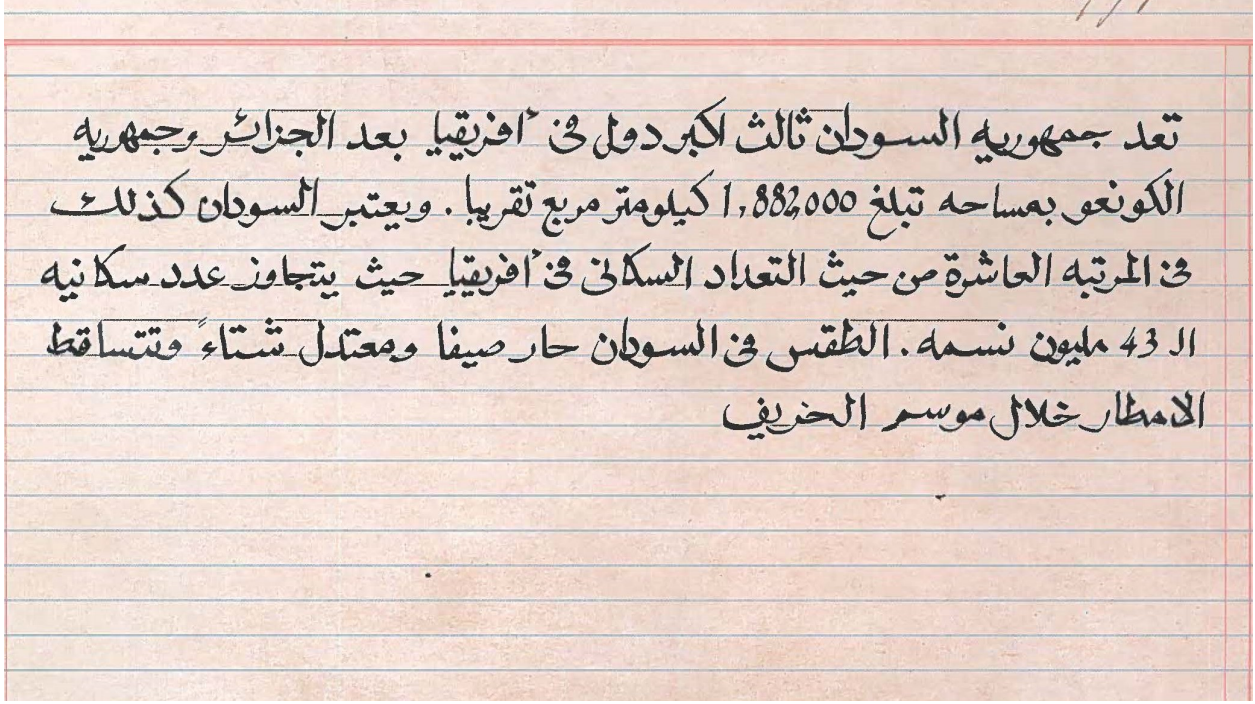 تعد جمهوريه السودان ثالث اكبر دول في أفريقيا بعد الجزائر وجمهوريه
الكونغو بمساحه تبلغ 1,882,000 كيلومتر مربع تقريبا. ويعتبر السودان كذلك
في المرتبه العاشرة من حيث التعداد السكاني في أفريقيا حيث يتجاوز عدد سكانيه
الـ 43 مليون نسمه. الطقس في السودان حار صيفا ومعتدل شتاءً وتتساقط
الامطار خلال موسم الخريف